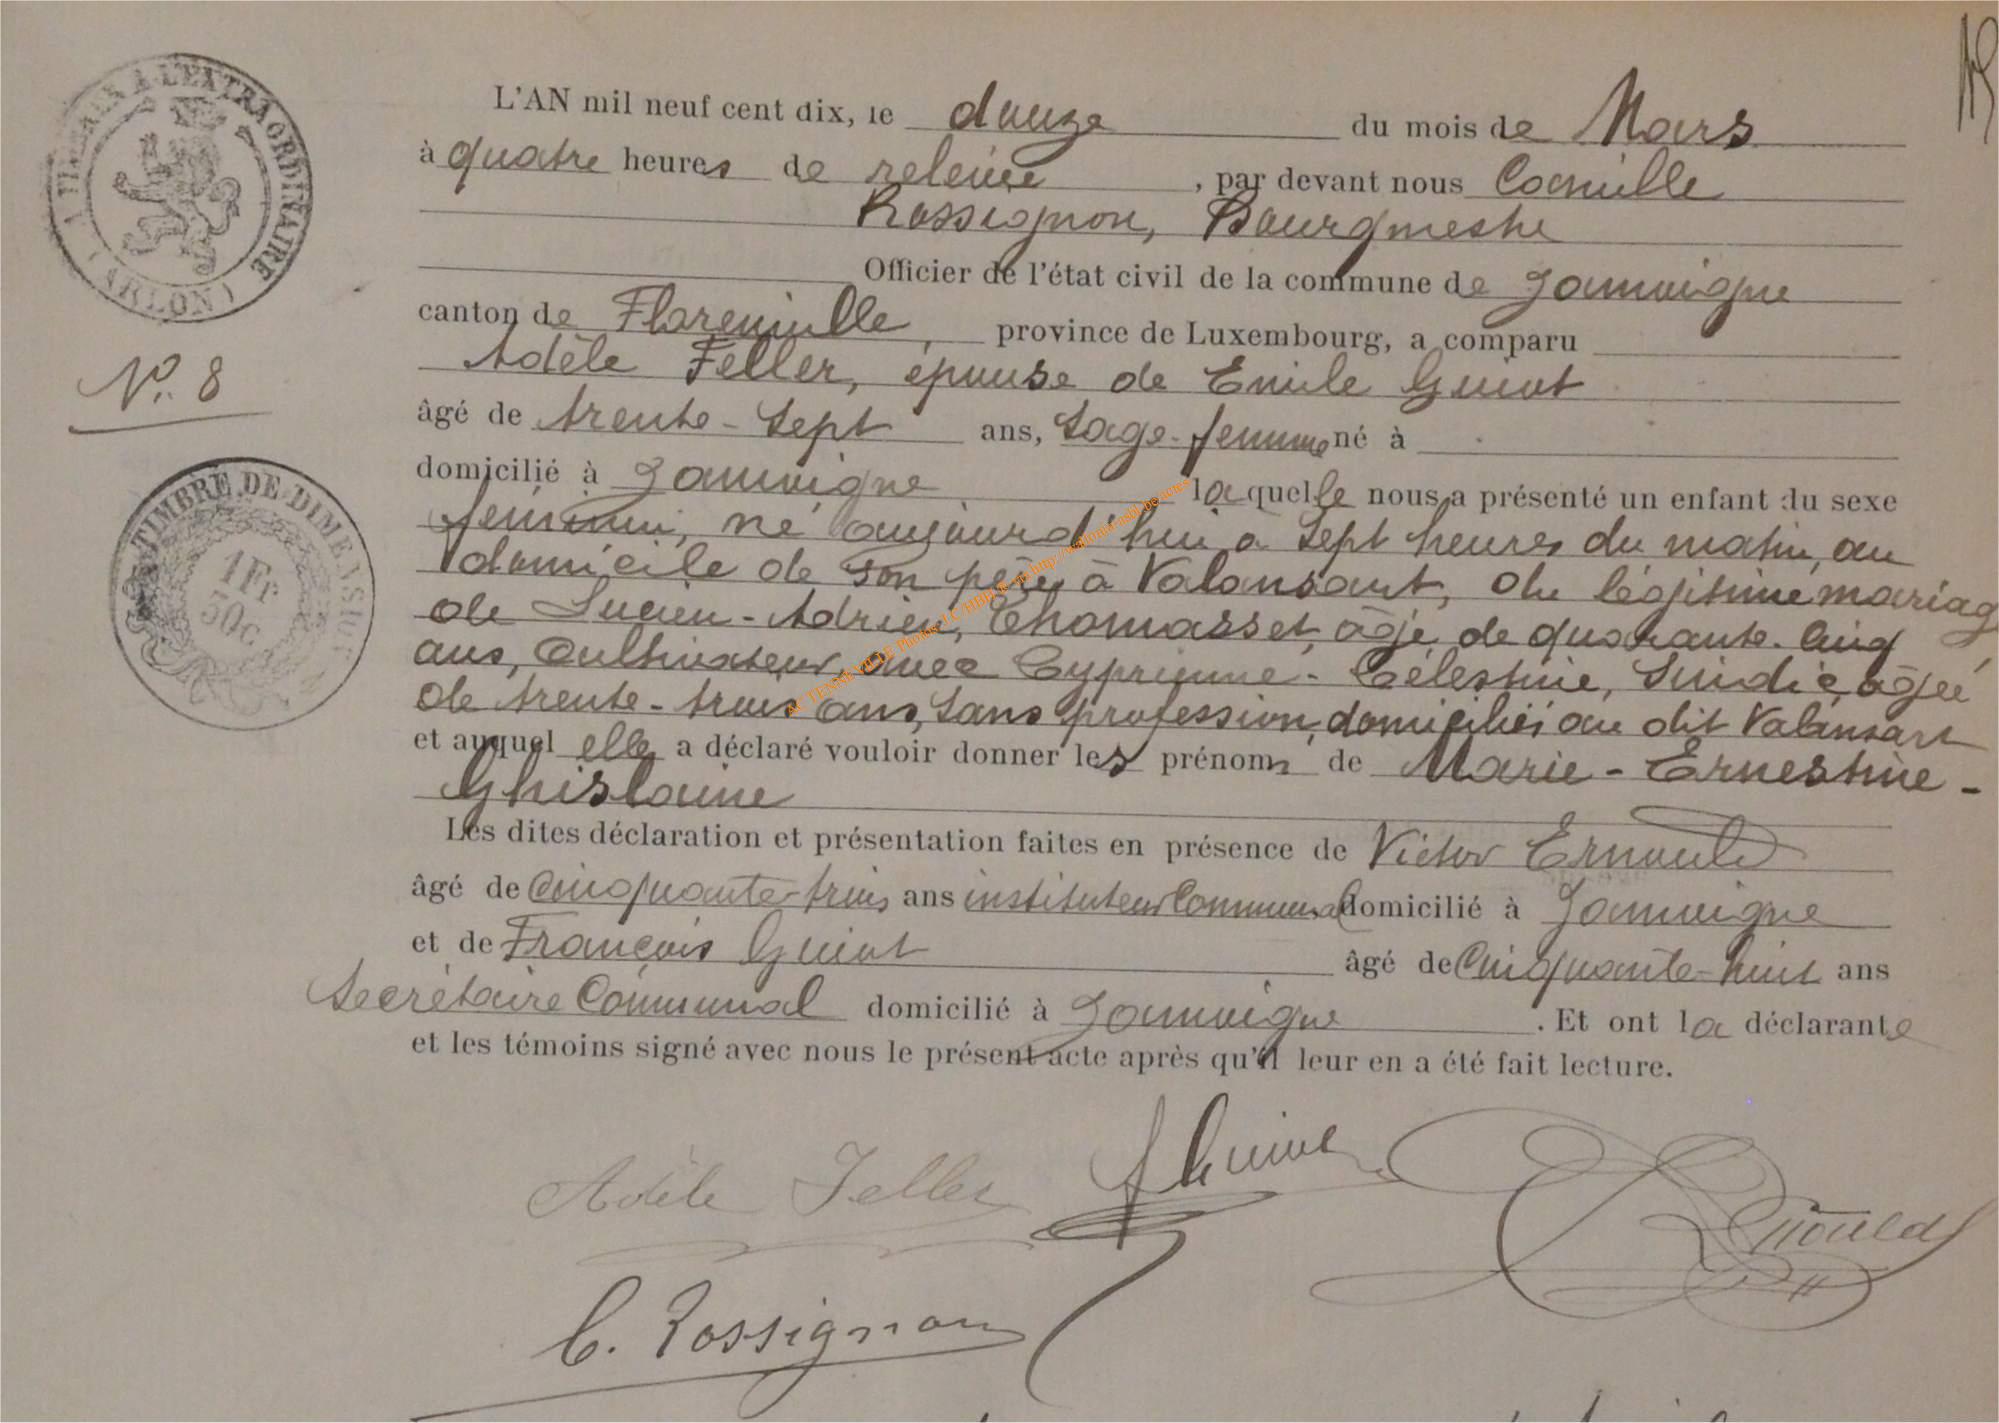 A TIMBRER A L'EXTRAORDINAIRE
(ARLON)
L'AN mil neuf cent dix, le douze du mois de Mars
à quatre heures de relevée, par devant nous Camille
Rossignon, Bourgmestre
Officier de l'état civil de la commune de Jamoigne
canton de Florenville, province de Luxembourg, a comparu
Adèle Feller, épouse de Emile Guiot
No. 8
âgé de trente-sept ans, Sage-femme né à
domicilié à Jamoigne laquelle nous a présenté un enfant du sexe
TIMBRE DE DIMENSION
1 Fr
50c
féminin, né aujourd'hui à Sept heures du matin, au
domicile de son père à Valansart, du légitime mariag
de Lucien-Adrien, Thomasset âgé de quarante-cinq
ans, Cultivateur, avec Cyprienne-Célestine, Lindic âgée
de trente-trois ans, sans profession, domiciliés au dit Valansart
et auquel elle a déclaré vouloir donner les prénoms de Marie-Ernestine-
Ghislaine
Les dites déclaration et présentation faites en présence de Victor Ernould
âgé de Cinquante-trois ans instituteur Communal domicilié à Jamoigne
et de François Guiot âgé de Cinquante-huit ans
Secrétaire Communal domicilié à Jamoigne. Et ont la déclarante
et les témoins signé avec nous le présent acte après qu'il leur en a été fait lecture.
Adèle Feller f Guiot Ernould
C. Rossignon